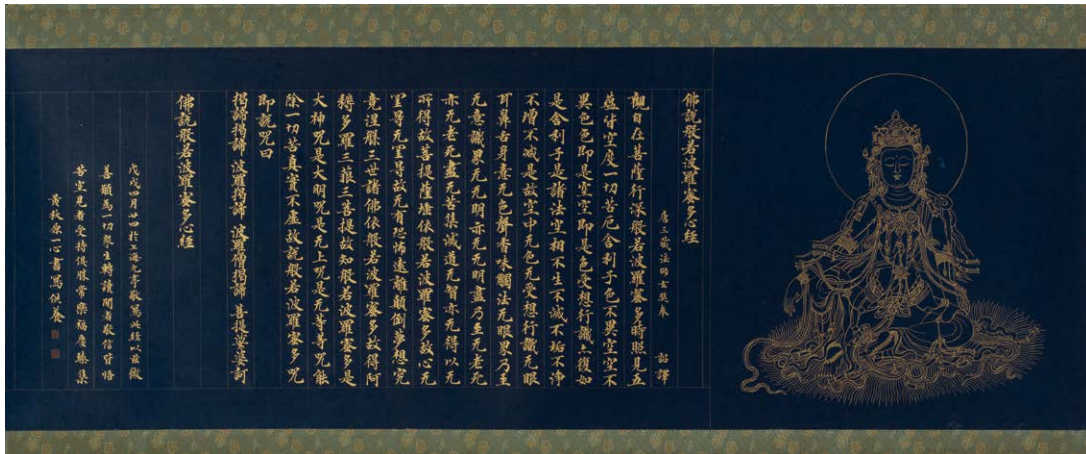 佛説般若波羅蜜多心経
唐三藏法師玄奘奉　詔譯
觀自在菩薩行深般若波羅蜜多時照見五
蘊皆空度一切苦厄舍利子色不異空空不
異色色即是空空即是色受想行識亦復如
是舍利子是諸法空相不生不滅不垢不淨
不增不減是故空中无色无受想行識无眼
耳鼻舌身意无色聲香味觸法无眼界乃至
无意識界无无明亦无无明盡乃至无老死
亦无老死盡无苦集滅道无智亦无得以无
所得故菩提薩埵依般若波羅蜜多故心无
罣㝵无罣㝵故无有恐怖遠離顛倒夢想究
竟涅槃三世諸佛依般若波羅蜜多故得阿
耨多羅三藐三菩提故知般若波羅蜜多是
大神咒是大明咒是无上咒是无等等咒能
除一切苦真實不虛故説般若波羅蜜多咒
即説咒曰
揭諦揭諦　波羅揭諦　波羅僧揭諦　菩提薩婆訶
佛説般若波羅蜜多心経
戊戌四月廿四於上海九亭敬寫此経以兹微
善願為一切衆生轉讀聞者敬信皆悟
苦空見者受持俱勝常樂福慶臻集
黄秋原一心書寫供養